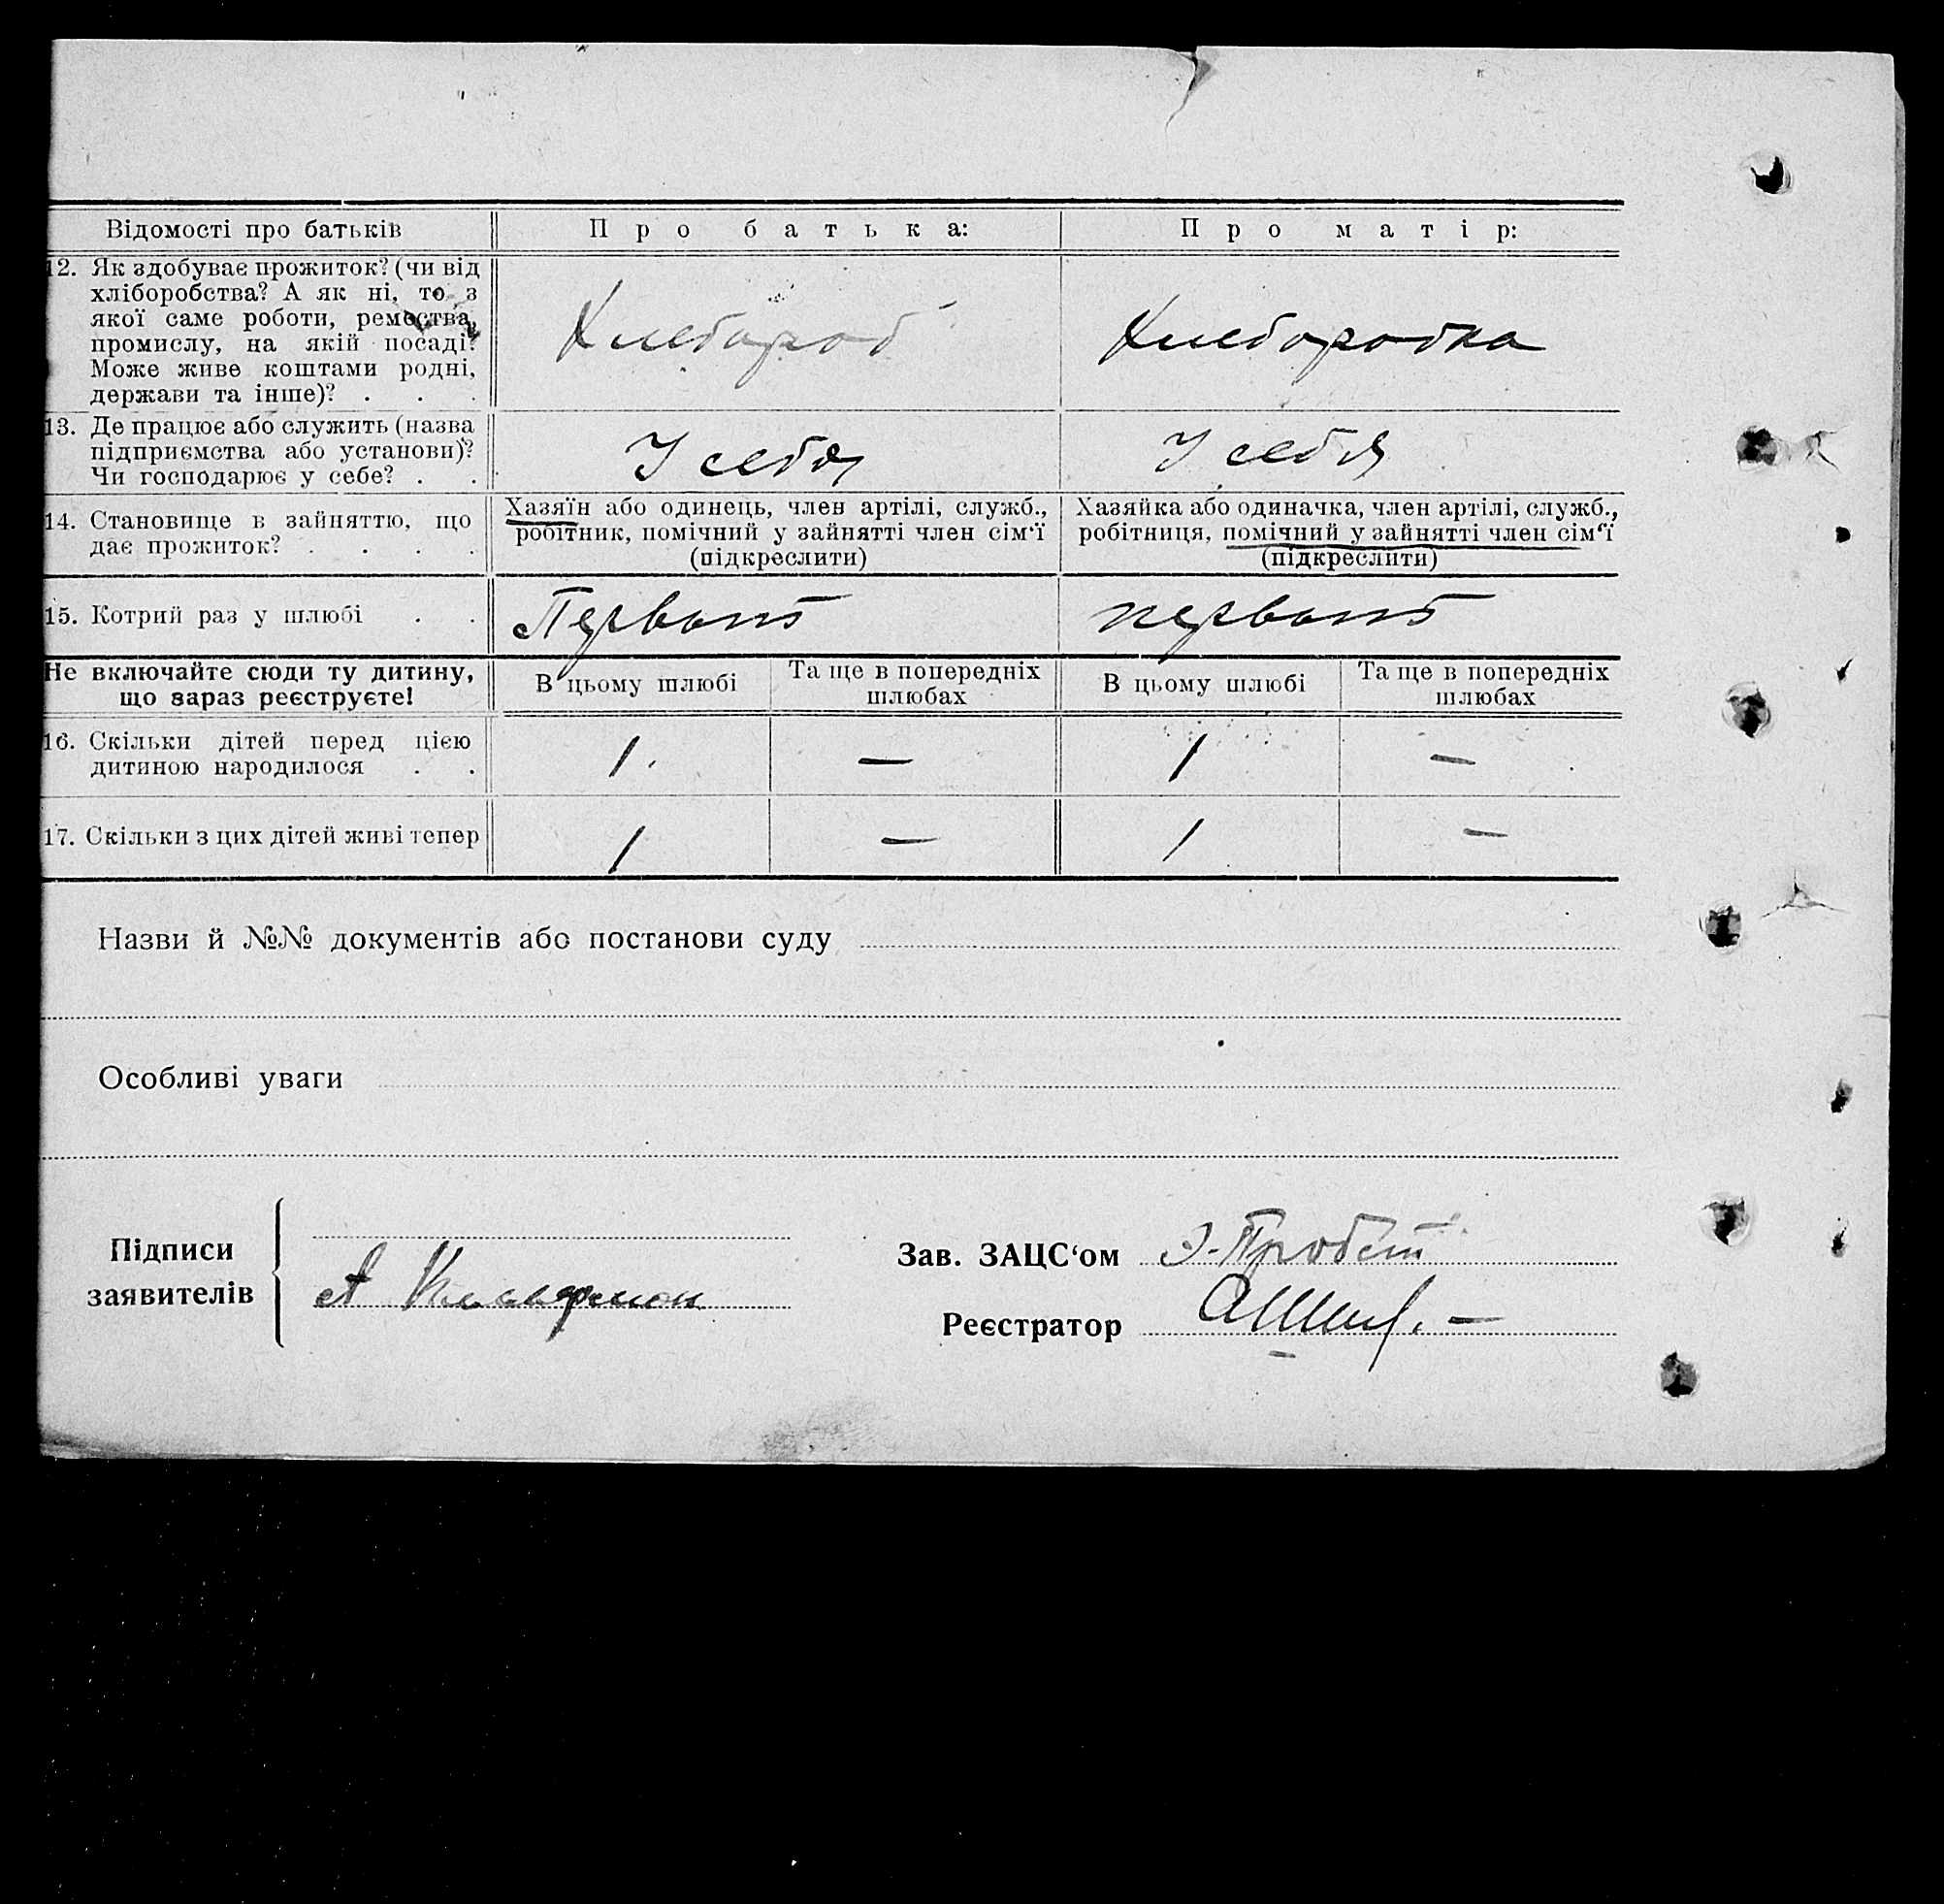 Відомості про батьків
Про батька:
Про матір:
12. Як здобуває прожиток? (чи від
хліборобства? А як ні, то з
якої саме роботи, ремества,
промислу, на якій посаді?
Може живе коштами родні,
держави та інше)? . . .
Хлебороб
Хлеборобка
13. Де працює або служить (назва
підприємства або установи)?
Чи господарює у себе? . .
У себя
У себя
14. Становище в зайняттю, що
дає прожиток? . . . .
Хазяїн або одинець, член артілі, служб.,
робітник, помічний у зайнятті член сім'ї
(підкреслити)
Хазяйка або одиначка, член артілі, служб.,
робітниця, помічний у зайнятті член сім'ї
(підкреслити)
15. Котрий раз у шлюбі . .
Первый
первый
Не включайте сюди ту дитину,
що зараз реєструєте!
В цьому шлюбі
Та ще в попередніх
шлюбах
В цьому шлюбі
Та ще в попередніх
шлюбах
16. Скільки дітей перед цією
дитиною народилося . .
1.
—
1
—
17. Скільки з цих дітей живі тепер
1
—
1
—
Назви й №№ документів або постанови суду
Особливі уваги
Підписи
заявителів
А
Зав. ЗАЦС'ом
Реєстратор